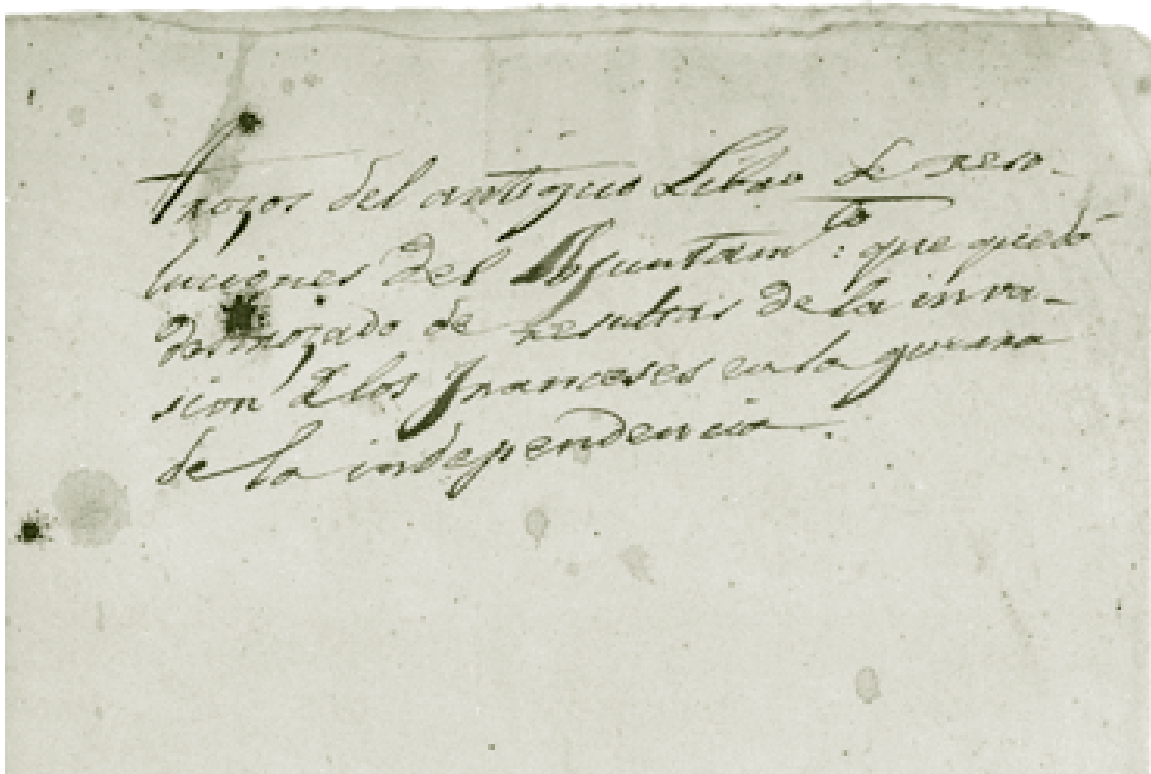 Trozos del antiguo Libro de reso-
luciones del Ayuntam.to que quedó
destrozado de resultas de la inva-
sion de los franceses en la guerra
de la independencia.